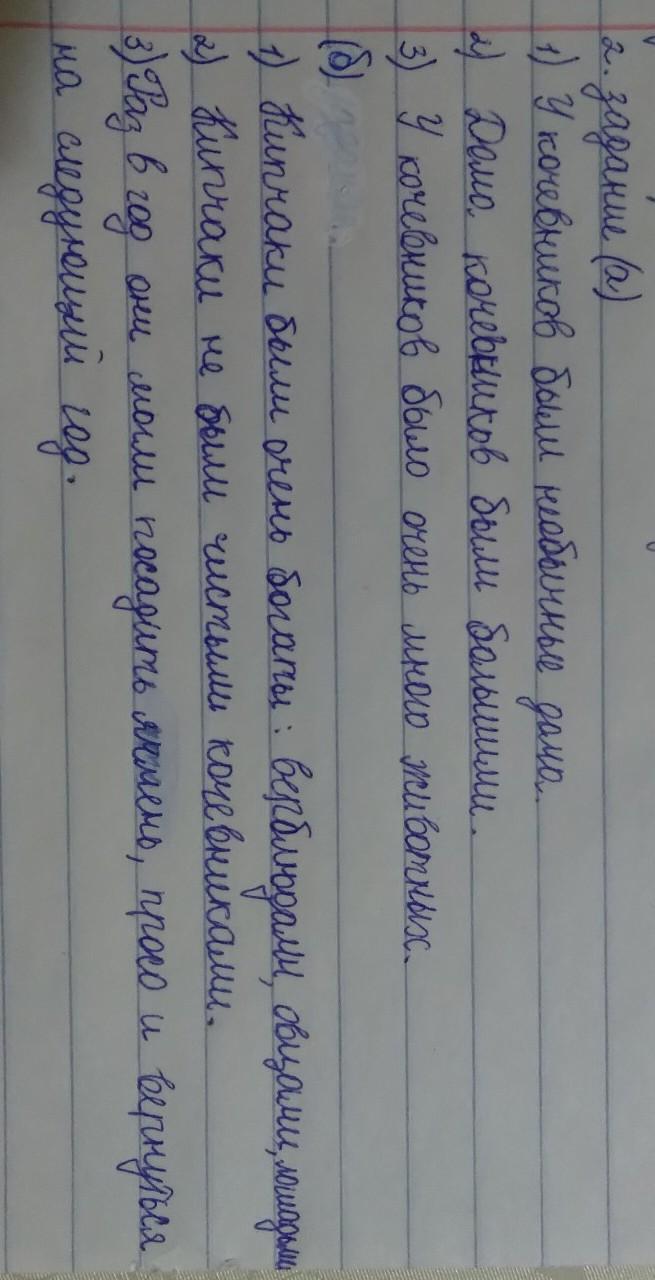 2. задание (а)
1) У кочевников были необычные дома.
2) Дома кочевников были большими.
3) У кочевников было очень много животных.
(б)
1) Кипчаки были очень богаты: верблюдами, овцами, лошадьми
2) Кипчаки не были чистыми кочевниками.
3) Раз в год они могли посадить ячмень, просо и вернуться
на следующий год.